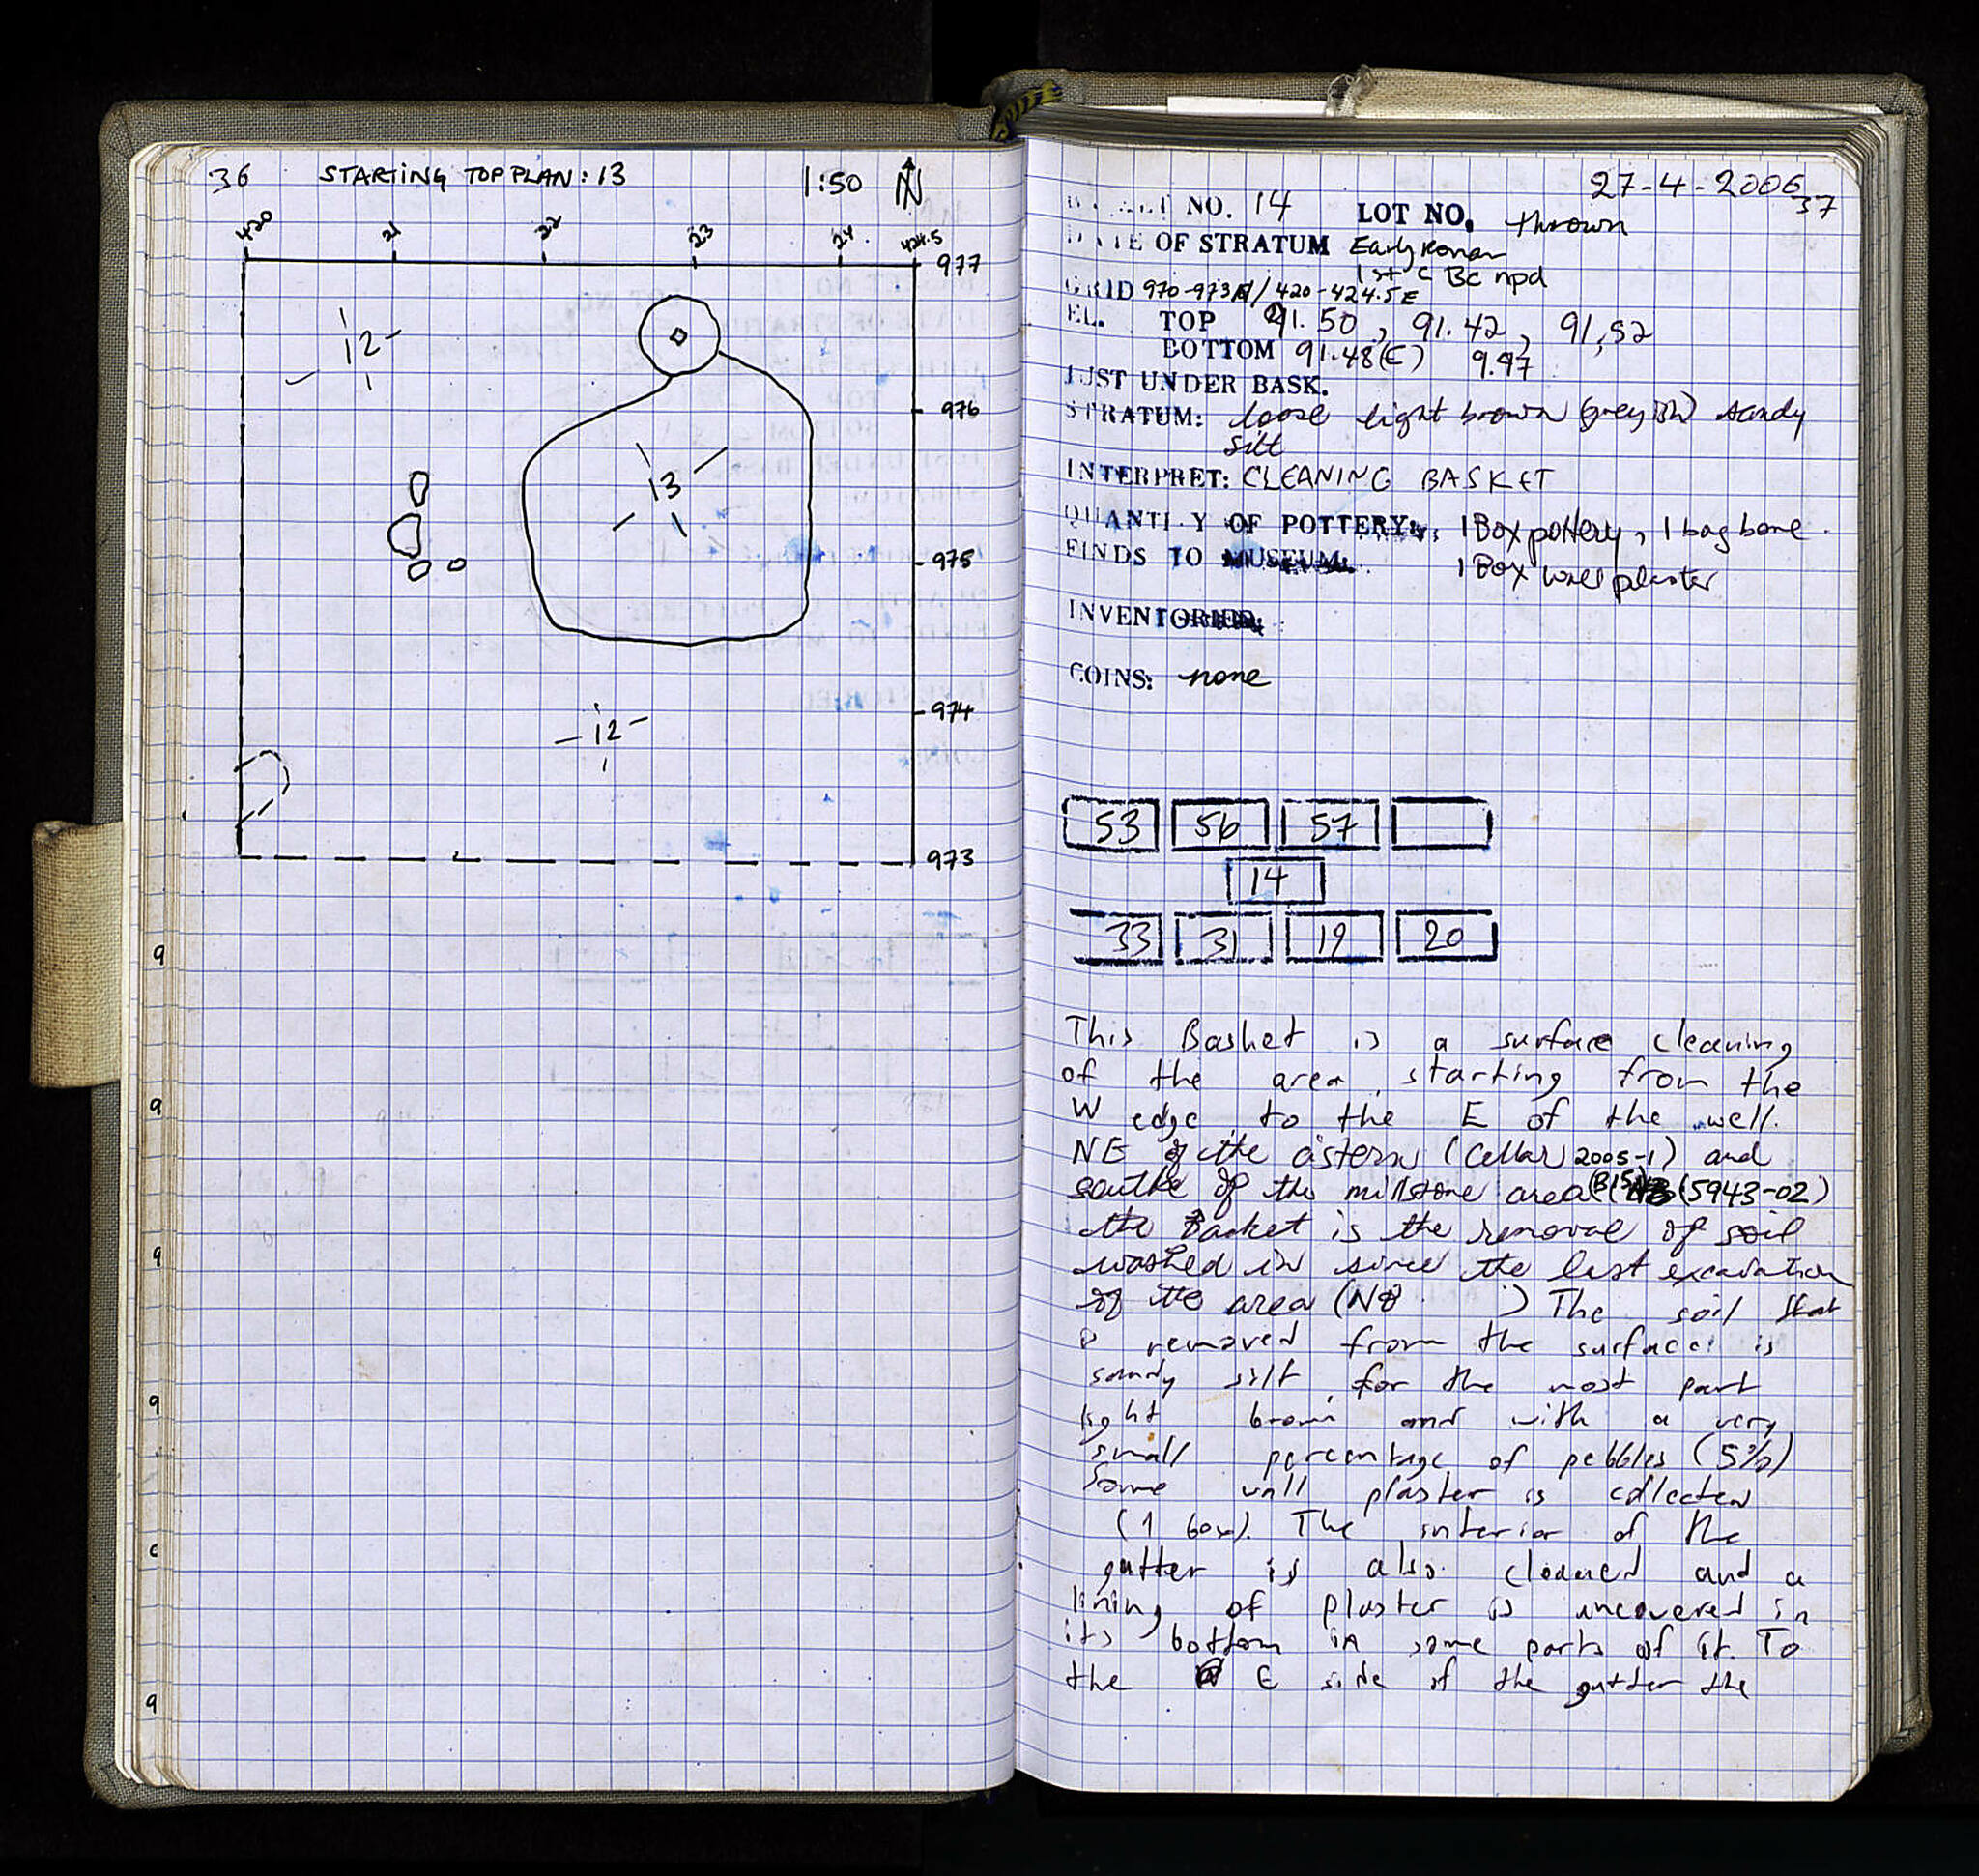 36 STARTING TOP PLAN: 13 1:50 N
420 21 22 23 24 424.5
977
12
976
13
975
974
12
973
27-4-2006
37
BASKET NO. 14 LOT NO. thrown
DATE OF STRATUM Early Roman
1st c BC npd
GRID 970-973N/420-424.5E
EL. TOP 91.50, 91.42, 91,52
BOTTOM 91.48(E) 9.97
JUST UNDER BASK.
STRATUM: loose light brown (greyish) sandy
silt
INTERPRET: CLEANING BASKET
QUANTITY OF POTTERY: 1 Box pottery, 1 bag bone.
FINDS TO MUSEUM: 1 Box wall plaster
INVENTORIED:
COINS: none
53 56 57
14
33 31 19 20
This Basket is a surface cleaning
of the area, starting from the
W edge to the E of the well.
NE of the cistern (Cellar 2005-1) and
southe of the millstone area (B15) (5943-02)
the Basket is the removal of soil
washed in since the last excavation
of the area (NB ) The soil that
is removed from the surface is
sandy silt, for the most part
light brown and with a very
small percentage of pebbles (5%)
Some wall plaster is collected
(1 box). The interior of the
gutter is also cleaned and a
lining of plaster is uncovered in
its bottom in some parts of it. To
the E side of the gutter the
9
9
9
9
c
9